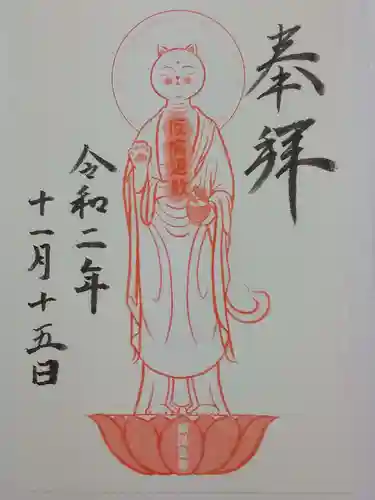 奉拝
令和二年
十一月十五日